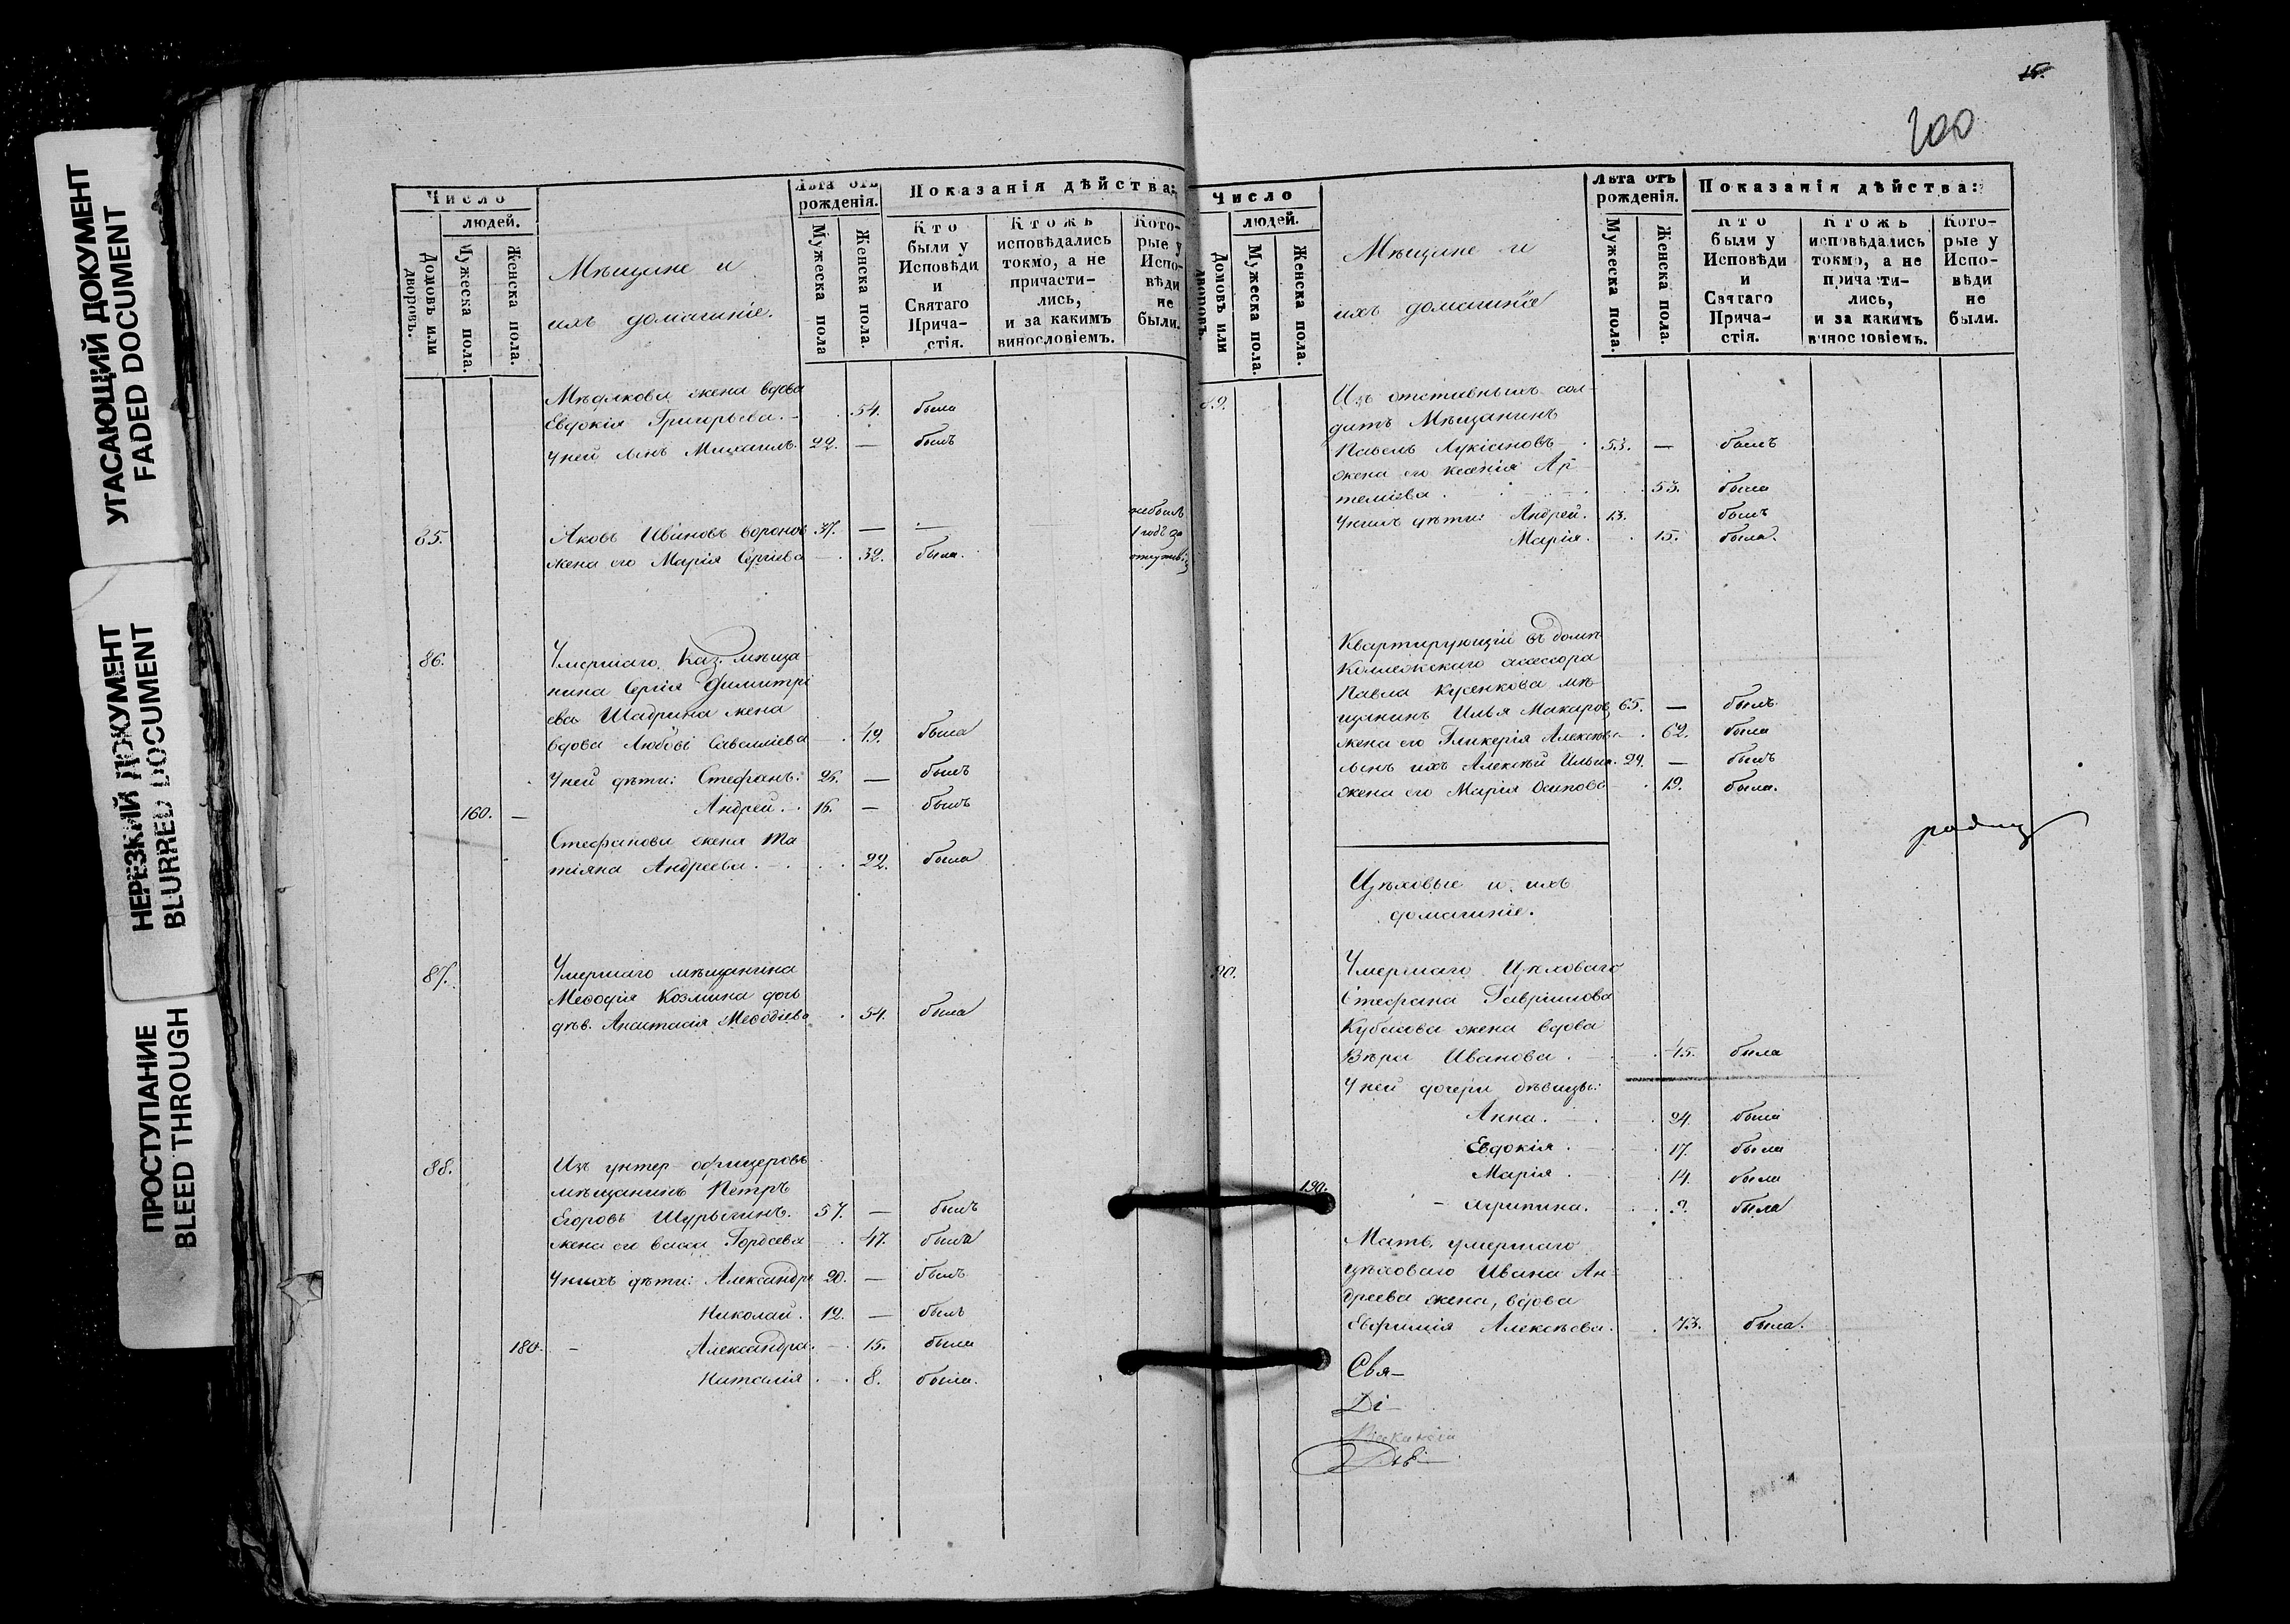 УГАСАЮЩИЙ ДОКУМЕНТ
FADED DOCUMENT
НЕРЕЗКИЙ ДОКУМЕНТ
BLURRED DOCUMENT
ПРОСТУПАНИЕ
BLEED THROUGH
Число
людей.
Домовъ или дворовъ.
Мужеска пола.
Женска пола.
Мѣщане и
ихъ домашніе.
Лѣта отъ
рожденія.
Мужеска пола
Женска пола.
Показанія дѣйства:
Кто
были у
Исповѣди
и
Святаго
Прича-
стія.
Ктожъ
исповѣдались
токмо, а не
причасти-
лись,
и за какимъ
винословіемъ.
Кото-
рые у
Испо-
вѣди
не
были.
жена вдова
Евдокія Григорьева. 54. была
У ней сынъ Михаилъ. 22. — былъ
небылъ
85. Яковъ Ивановъ Воронов 37. — — 1 годъ за
жена его Марія Сергіева 32. была.
86. Умершаго Каз. мѣща
нина Сергія Димитрі
ева Шадрина жена
вдова Любовь Савеліева 49. была
У ней дѣти: Стефанъ. 25. — былъ
160. — Андрей. 16. — былъ
Стефанова жена Та
тіяна Андреева. 22. была
87. Умершаго мѣщанина
Меѳодія Козмина дочь
дѣв. Анастасія Меѳодіева 54. была
88. Изъ унтер-офицеровъ
мѣщанинъ Петръ
Егоровъ Шурыгинъ. 57. — былъ
жена его Васса Гордеева 47. была
У нихъ дѣти: Александръ 20. — былъ
Николай. 12. — былъ
180. — Александра. 15. была
Наталія. 8. была.
15.
200
Число
людей.
Домовъ или дворовъ.
Мужеска пола.
Женска пола.
Мѣщане и
ихъ домашніе
Лѣта отъ
рожденія.
Мужеска пола.
Женска пола.
Показанія дѣйства:
Кто
были у
Исповѣди
и
Святаго
Прича-
стія.
Ктожъ
исповѣдались
токмо, а не
причасти-
лись,
и за какимъ
винословіемъ.
Кото-
рые у
Испо-
вѣди
не
были.
89. Изъ отставныхъ сол-
датъ Мѣщанинъ
Павелъ Лукіановъ 53. — былъ
жена его Ксенія Ар-
теміева. 53. была
У нихъ дѣти: Андрей. 13. былъ
Марія. 15. была.
Квартирующій въ домѣ
Коллежскаго асессора
Павла Кусенкова мѣ-
щанинъ Илья Макаровъ 65. — былъ
жена его Гликерія Алексѣева 62. была
сынъ ихъ Алексѣй Ильин. 24. — былъ
жена его Марія Осипова 19. была.
Цѣховые и ихъ
домашніе.
90. Умершаго Цѣховаго
Стефана Гавріилова
Кубасова жена вдова
Вѣра Иванова. 45. была
У ней дочери дѣвицы:
Анна. 24. была
Евдокія. 17. была
Марія. 14. была
190. — Агрипина. 9. была
Мать умершаго
цѣховаго Ивана Ан-
дреева жена, вдова
Евфимія Алексѣева. 73. была.
Свя—
Ді—